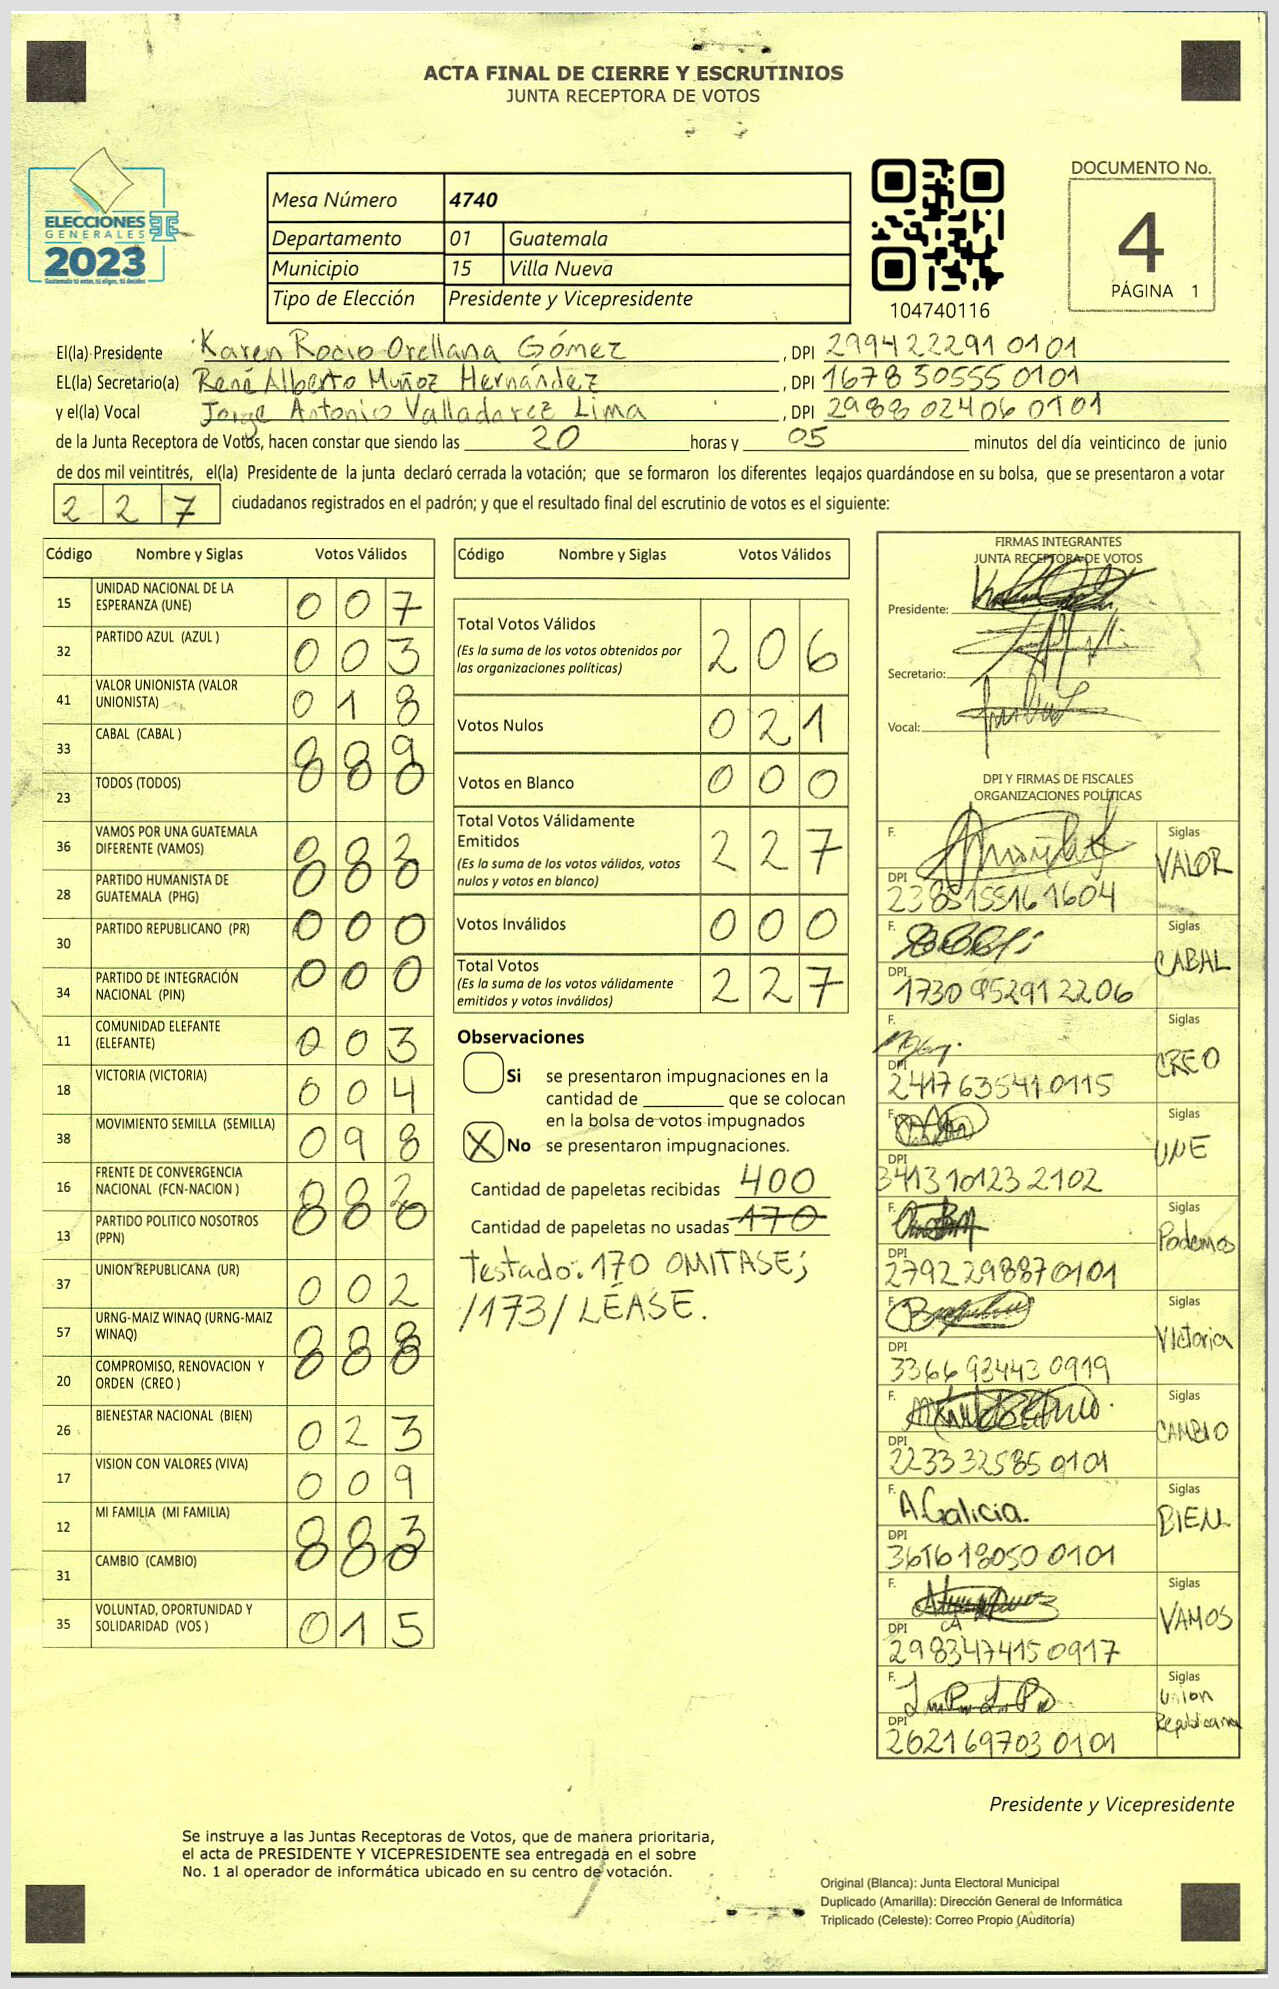 ACTA FINAL DE CIERRE Y ESCRUTINIOS
JUNTA RECEPTORA DE VOTOS
ELECCIONES
GENERALES
2023
Mesa Número 4740
Departamento 01 Guatemala
Municipio 15 Villa Nueva
Tipo de Elección Presidente y Vicepresidente
104740116
DOCUMENTO No.
4
PÁGINA 1
El(la) Presidente Karen Rocio Orellana Gómez , DPI 299422291 0101
EL(la) Secretario(a) René Alberto Muñoz Hernández , DPI 1678 30555 0101
y el(la) Vocal Jorge Antonio Valladarez Lima , DPI 2988 02406 0101
de la Junta Receptora de Votos, hacen constar que siendo las 20 horas y 05 minutos del día veinticinco de junio
de dos mil veintitrés, el(la) Presidente de la junta declaró cerrada la votación; que se formaron los diferentes legajos guardándose en su bolsa, que se presentaron a votar
2 2 7 ciudadanos registrados en el padrón; y que el resultado final del escrutinio de votos es el siguiente:
Código Nombre y Siglas Votos Válidos
15 UNIDAD NACIONAL DE LA
ESPERANZA (UNE) 0 0 7
32 PARTIDO AZUL (AZUL ) 0 0 3
41 VALOR UNIONISTA (VALOR
UNIONISTA) 0 1 8
33 CABAL (CABAL )
23 TODOS (TODOS)
36 VAMOS POR UNA GUATEMALA
DIFERENTE (VAMOS)
28 PARTIDO HUMANISTA DE
GUATEMALA (PHG)
30 PARTIDO REPUBLICANO (PR) 0 0 0
34 PARTIDO DE INTEGRACIÓN
NACIONAL (PIN) 0 0 0
11 COMUNIDAD ELEFANTE
(ELEFANTE) 0 0 3
18 VICTORIA (VICTORIA) 0 0 4
38 MOVIMIENTO SEMILLA (SEMILLA) 0 9 8
16 FRENTE DE CONVERGENCIA
NACIONAL (FCN-NACION )
13 PARTIDO POLITICO NOSOTROS
(PPN)
37 UNION REPUBLICANA (UR) 0 0 2
57 URNG-MAIZ WINAQ (URNG-MAIZ
WINAQ)
20 COMPROMISO, RENOVACION Y
ORDEN (CREO )
26 BIENESTAR NACIONAL (BIEN) 0 2 3
17 VISION CON VALORES (VIVA) 0 0 9
12 MI FAMILIA (MI FAMILIA)
31 CAMBIO (CAMBIO)
35 VOLUNTAD, OPORTUNIDAD Y
SOLIDARIDAD (VOS ) 0 1 5
Código Nombre y Siglas Votos Válidos
Total Votos Válidos
(Es la suma de los votos obtenidos por
las organizaciones políticas) 2 0 6
Votos Nulos 0 2 1
Votos en Blanco 0 0 0
Total Votos Válidamente
Emitidos
(Es la suma de los votos válidos, votos
nulos y votos en blanco) 2 2 7
Votos Inválidos 0 0 0
Total Votos
(Es la suma de los votos válidamente
emitidos y votos inválidos) 2 2 7
Observaciones
Si se presentaron impugnaciones en la
cantidad de que se colocan
en la bolsa de votos impugnados
X No se presentaron impugnaciones.
Cantidad de papeletas recibidas 400
Cantidad de papeletas no usadas 170
Testado: 170 OMITASE;
/173/ LÉASE.
FIRMAS INTEGRANTES
JUNTA RECEPTORA DE VOTOS
Presidente:
Secretario:
Vocal:
DPI Y FIRMAS DE FISCALES
ORGANIZACIONES POLÍTICAS
F. Siglas
VALOR
DPI
F. Siglas
CABAL
DPI
1730 95291 2206
F. Siglas
CREO
DPI
2417 63541 0115
F. Siglas
UNE
DPI
3413 10123 2102
F. Siglas
Podemos
DPI
2792 29887 0101
F. Siglas
Victoria
DPI
3366 93443 0919
F. Siglas
CAMBIO
DPI
2233 32585 0101
F. A. Galicia. Siglas
BIEN
DPI
3616 18050 0101
F. Siglas
VAMOS
DPI
2983474150917
F. Siglas
Union
Republicana
DPI
2621 69703 0101
Presidente y Vicepresidente
Se instruye a las Juntas Receptoras de Votos, que de manera prioritaria,
el acta de PRESIDENTE Y VICEPRESIDENTE sea entregada en el sobre
No. 1 al operador de informática ubicado en su centro de votación.
Original (Blanca): Junta Electoral Municipal
Duplicado (Amarilla): Dirección General de Informática
Triplicado (Celeste): Correo Propio (Auditoría)